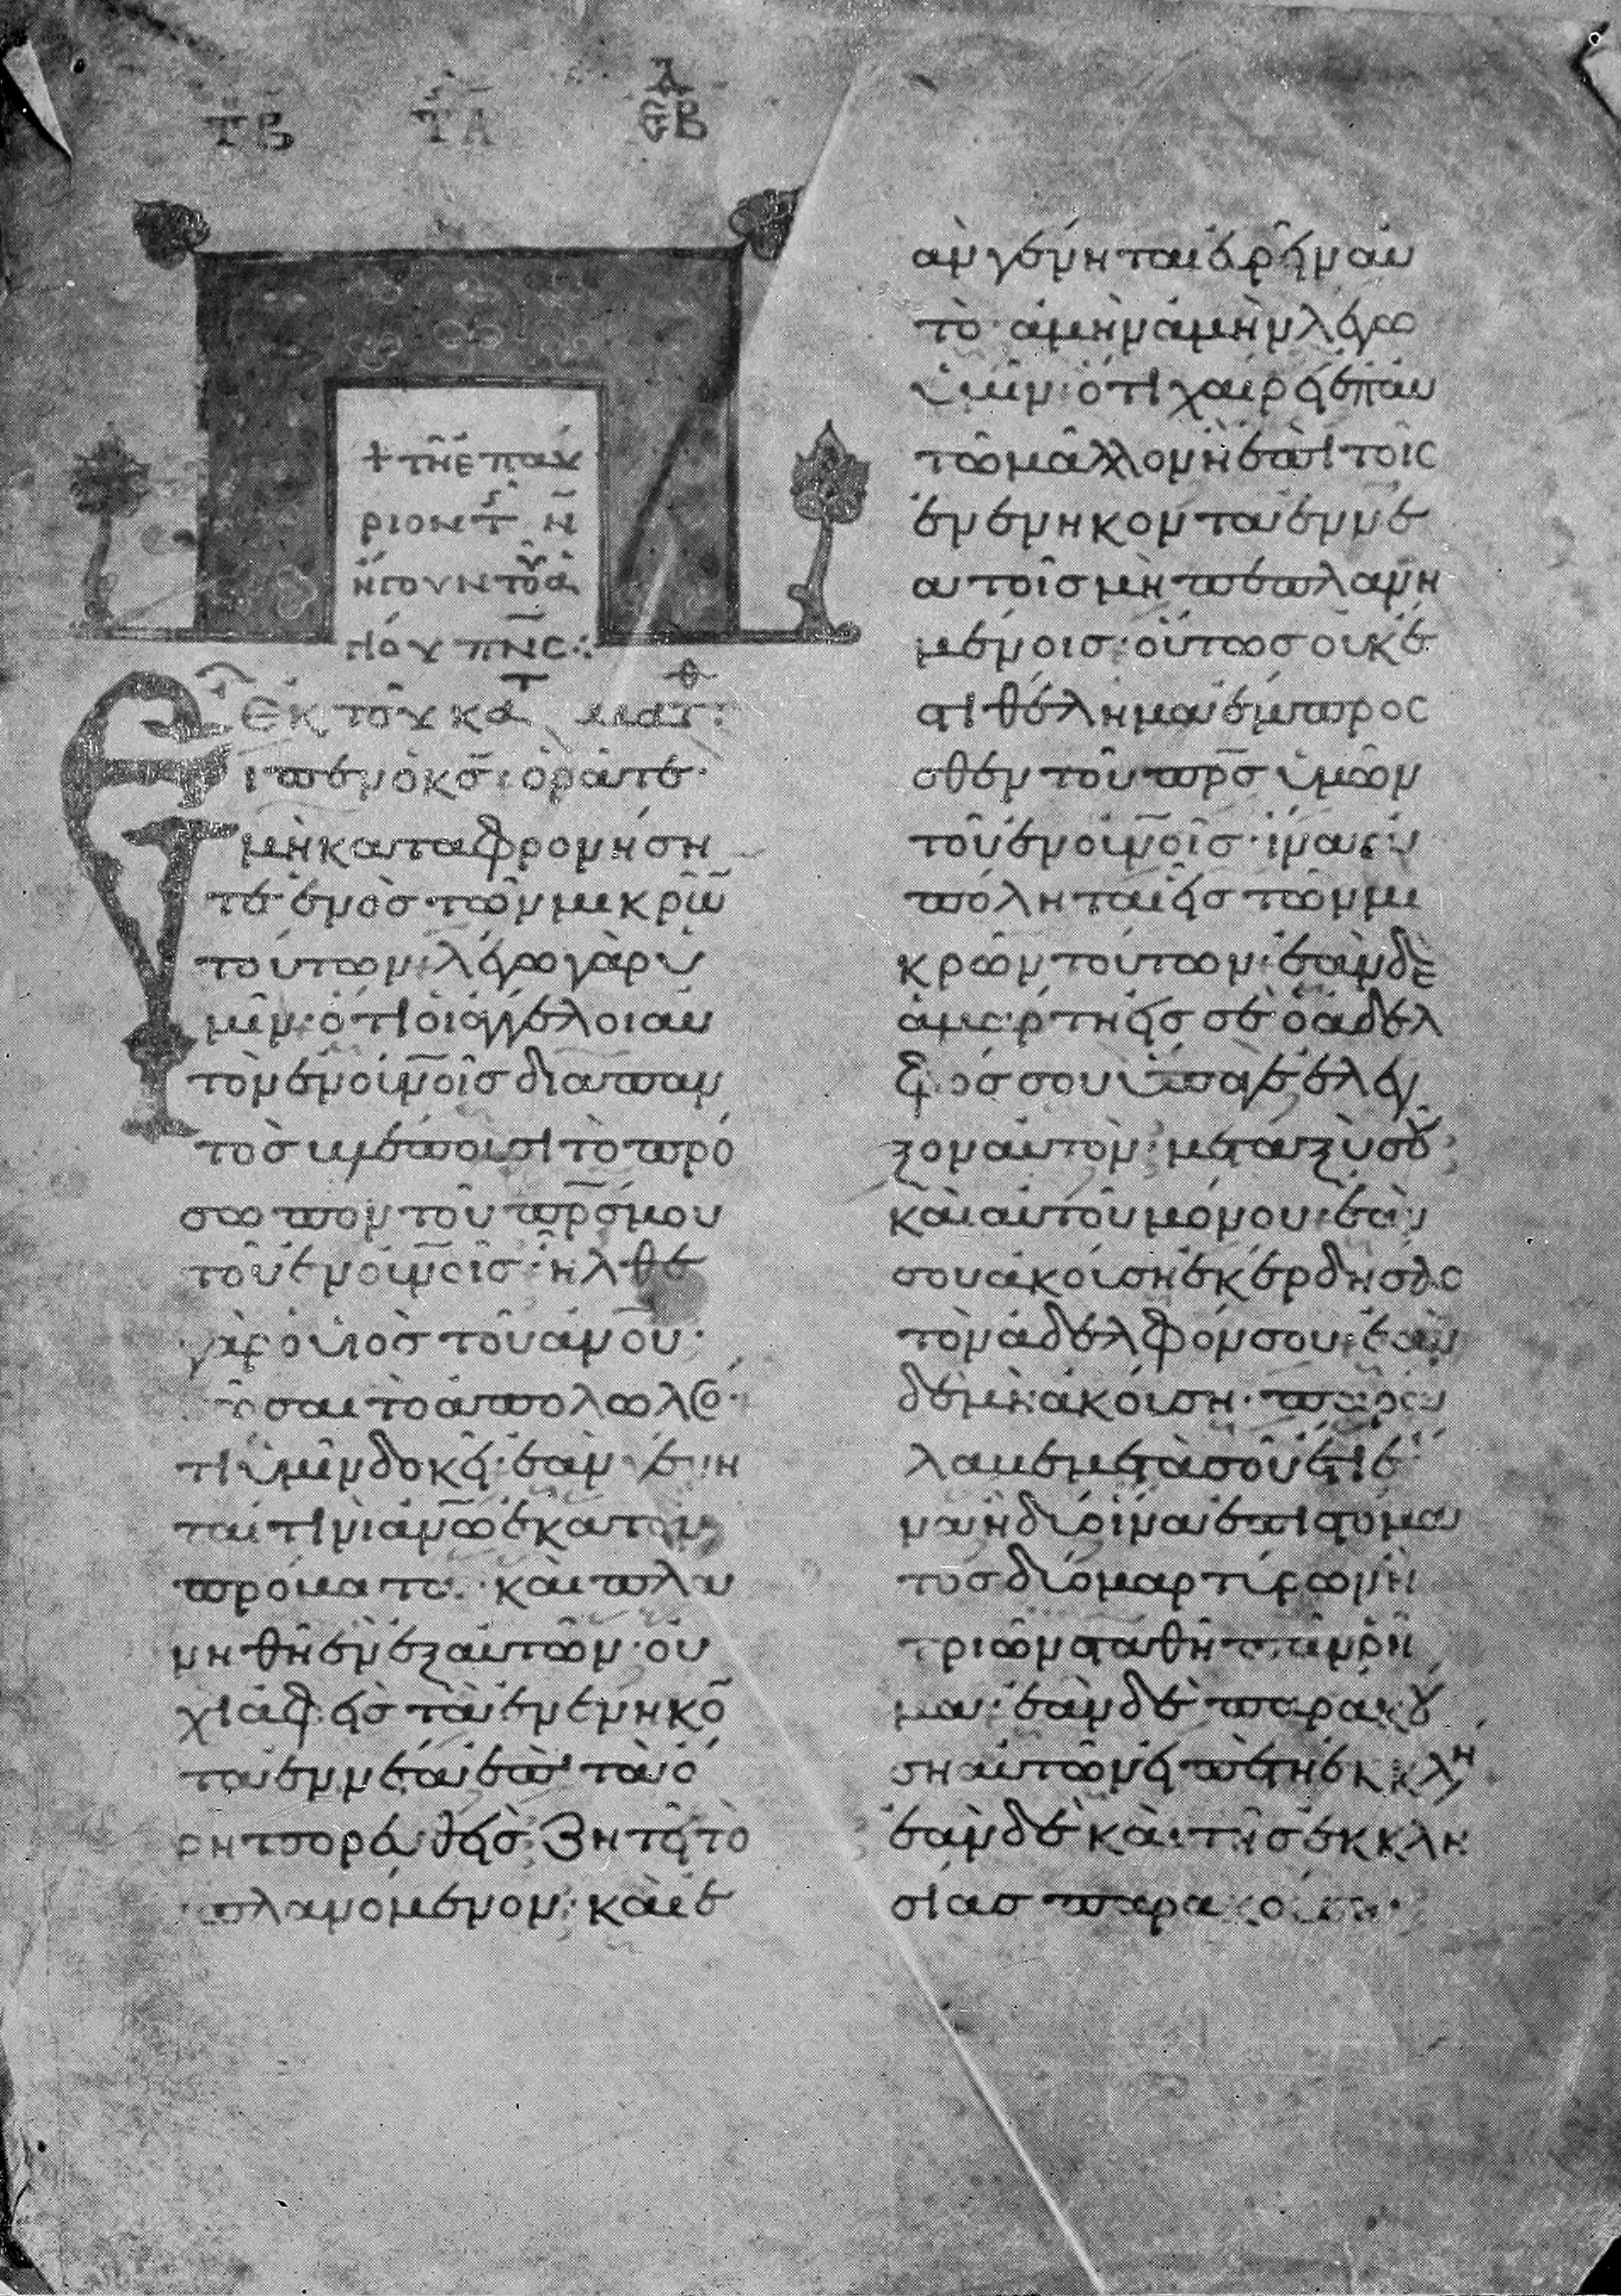 τβ τα λ εβ
+ τῆ ἐπαύ
ριον τ ν
ἤγουν τοῦ ἁ
γίου πνς:
Ἐκ τοῦ κατ ματθ:
Εἶπεν ὁ κς· ὁρᾶτε·
μὴ καταφρονήση
τε ἑνὸς τῶν μικρῶ
τούτων· λέγω γὰρ ὑ
μῖν· ὅτι οἱ ἄγγελοι αὐ
τῶν ἐν οὐνοῖς διαπαν
τὸς βλέπουσι τὸ πρό
σωπον τοῦ πρς μου
τοῦ ἐν οὐνοῖς· ἦλθε
γὰρ ὁ υἱὸς τοῦ ἀνου·
σῶσαι τὸ ἀπολωλός·
τί ὑμῖν δοκεῖ· ἐὰν γένη
ταί τινι ἀνω ἑκατὸν
πρόβατα· καὶ πλα
νηθῆ ἓν ἐξ αὐτῶν· οὐ
χὶ ἀφεὶς τὰ ἐνενηκο
ταεννέα ἐπὶ τὰ ὄ
ρη πορευθεὶς ζητεῖ τὸ
πλανόμενον· καὶ ἐ
ὰν γένηται εὑρεῖν αὐ
τὸ· ἀμὴν ἀμὴν λέγω
ὑμῖν ὅτι χαίρει ἐπ αὐ
τῶ μᾶλλον ἢ ἐπὶ τοῖς
ἐνενηκονταεννέ
α τοῖς μὴ πεπλανη
μένοις· οὕτως οὐκ ἔ
στι θέλημα ἔμπρος
σθεν τοῦ πρς ὑμῶν
τοῦ ἐν οὐνοῖς· ἵνα ἀ
πόληται εἷς τῶν μι
κρῶν τούτων· ἐὰν δὲ
ἁμαρτήσει σὲ ὁ ἀδελ
φός σου ὕπαγε ἔλεγ
ξον αὐτὸν· μεταξὺ σοῦ
καὶ αὐτοῦ μόνου· ἐάν
σου ἀκούση ἐκέρδησας
τὸν ἀδελφόν σου· ἐὰν
δὲ μὴ ἀκούση· παρά
λαβε μετὰ σοῦ ἔτι ἕ
να ἢ δύο ἵνα ἐπὶ στόμα
τος δύο μαρτύρων ἢ
τριῶν σταθῆ πᾶν ῥῆ
μα· ἐὰν δὲ παρακού
ση αὐτῶν εἰπὲ τῆ ἐκκλη
ἐὰν δὲ καὶ τῆς ἐκκλη
σίας παρακούση·